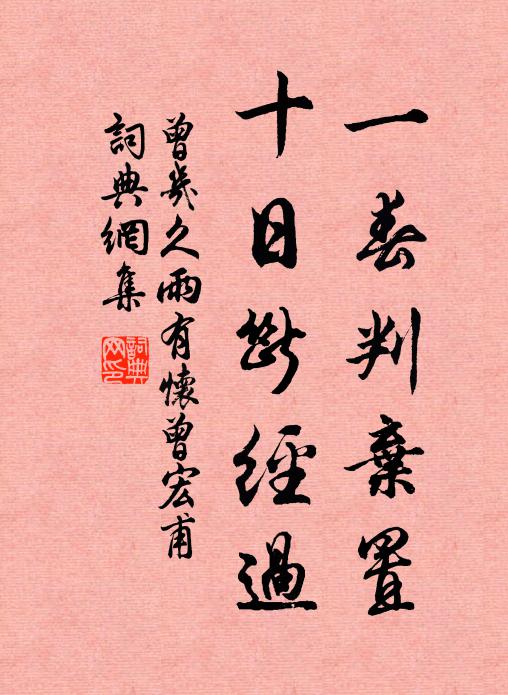 一春判棄置
十日斷經過
曾幾久雨有懷曾宏甫
詞典網集
詞典網印